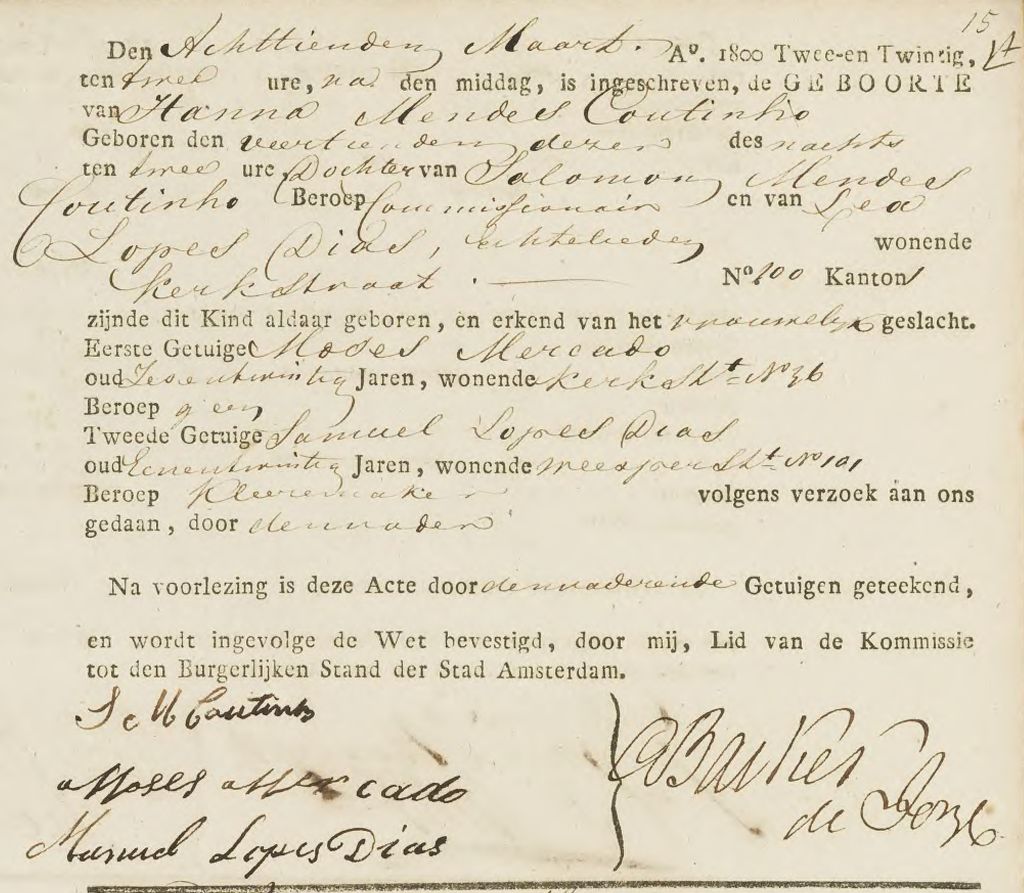 15
Den Achttienden Maart. A°. 1800 Twee-en Twintig,
ten twee ure, na den middag, is ingeschreven, de GEBOORTE
van Hanna Mendes Coutinho
Geboren den veertienden dezer des nachts
ten twee ure Dochter van Salomon Mendes
Coutinho Beroep Commissionair en van Lea
Lopes Dias, Echtelieden wonende
Kerkstraat. N° 100 Kanton 1
zijnde dit Kind aldaar geboren, en erkend van het vrouwelijk geslacht.
Eerste Getuige Moses Mercado
oud Zesentwintig Jaren, wonende Kerkstt N° 36
Beroep geen
Tweede Getuige Samuel Lopes Dias
oud Eenentwintig Jaren, wonende Weesperstt N° 101
Beroep Kleeremaker volgens verzoek aan ons
gedaan, door den vader
Na voorlezing is deze Acte door den vader ende Getuigen geteekend,
en wordt ingevolge de Wet bevestigd, door mij, Lid van de Kommissie
tot den Burgerlijken Stand der Stad Amsterdam.
Coutinho
Moses Mercado
Lopes Dias
de